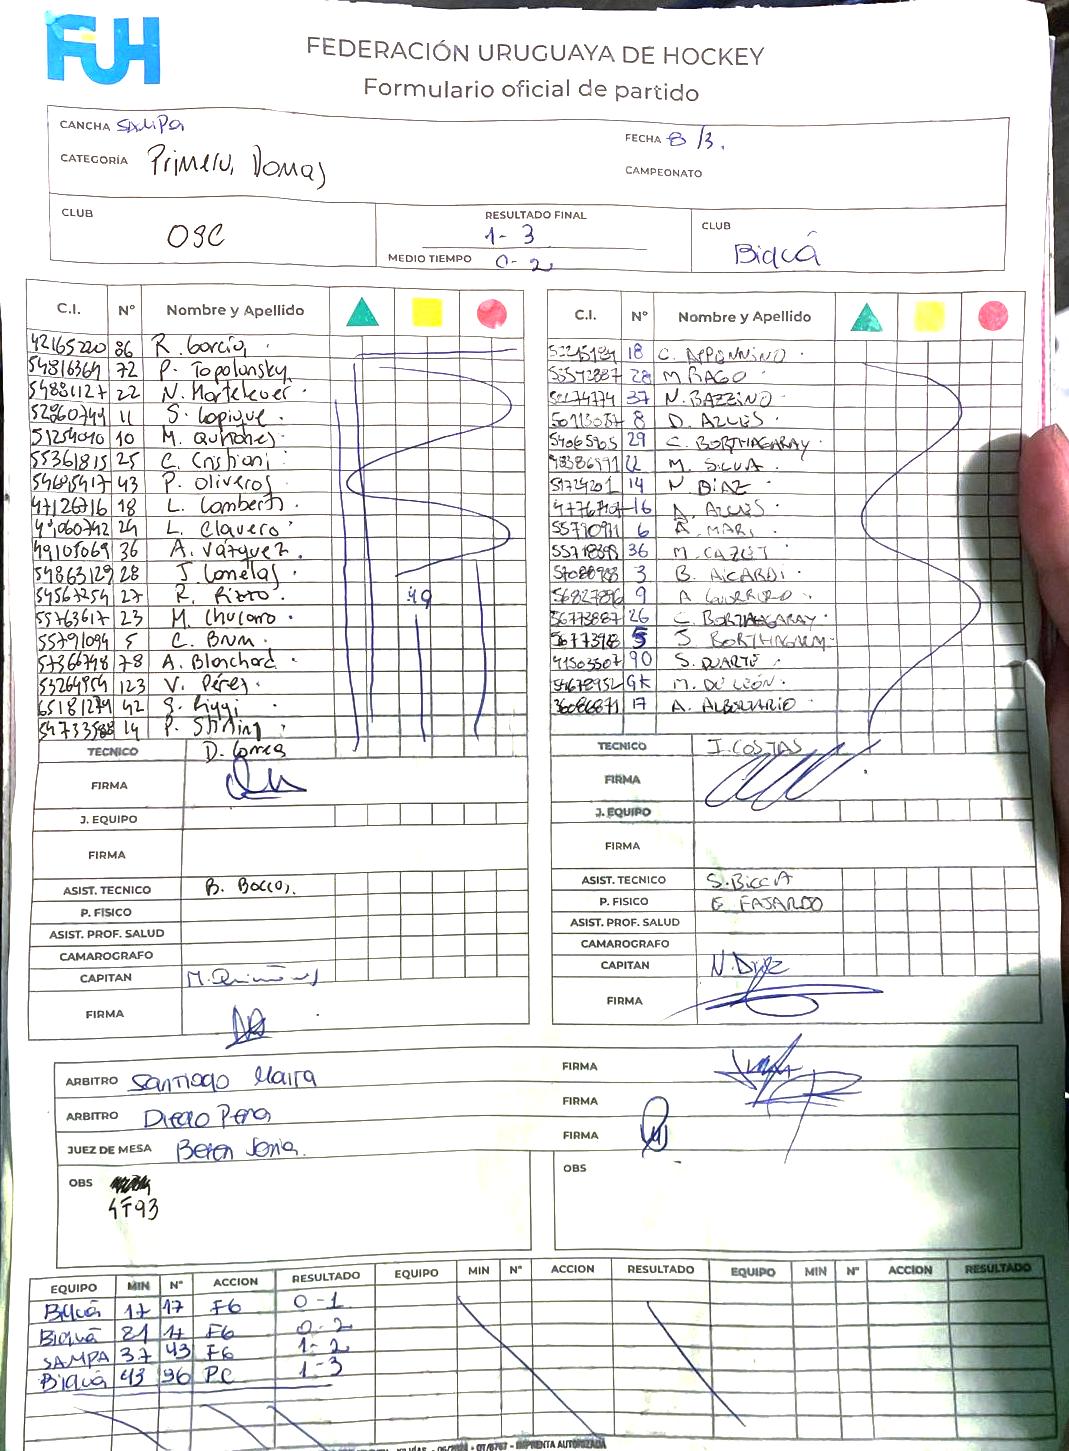 FUH
FEDERACIÓN URUGUAYA DE HOCKEY
Formulario oficial de partido
CANCHA SAMPA FECHA 8/3.
CATEGORÍA Primera, Damas CAMPEONATO
CLUB OSC RESULTADO FINAL 1-3 CLUB Biguá
MEDIO TIEMPO 0-2
C.I. Nº Nombre y Apellido
42165220 86 R. García
54816364 72 P. Topolansky
54881127 22 N.
52860744 11 S. Lapique
51254040 10 M. Quiñones
55361815 25 C. Cristiani
54695417 43 P. Oliveros
47126716 18 L. Lamberti
24 L. Clavero
49105069 36 A. Vázquez
54863129 28 J. Lanelas
54567254 27 R. Rizzo 49
55763617 23 M. Chucarro
55791094 5 C. Brum
57366748 78 A. Blanchard
53264954 123 V. Pérez
65181274 42 S. Riggi
54733588 14 P. Stirling
TECNICO D. Correa
FIRMA
J. EQUIPO
FIRMA
ASIST. TECNICO B. Bocco,
P. FISICO
ASIST. PROF. SALUD
CAMAROGRAFO
CAPITAN M. Quiñones
FIRMA
C.I. Nº Nombre y Apellido
18 C. APPONNINO
55572887 28 M RAGO
37 N. BAZZINO
8 D. AZUES
54065905 29 C. BORTHAGARAY
22 M. SILVA
51724201 14 N. DIAZ
16 A. AZUES
55790971 6 A. MARI
36 M. CAZET
57088988 3 B. AICARDI
56827896 9 A GUERRERO
56773887 26 C. BORTHAGARAY
5 J. BORTHAGARAY
41503507 90 S. DUARTE
54678952 GK M. DE LEÓN
36086871 17 A. ALBERTARIO
TECNICO J. COSTAS
FIRMA
J. EQUIPO
FIRMA
ASIST. TECNICO S. BICCA
P. FISICO E FAJARDO
ASIST. PROF. SALUD
CAMAROGRAFO
CAPITAN N. Diaz
FIRMA
ARBITRO Santiago Maira FIRMA
ARBITRO Diego Pena FIRMA
JUEZ DE MESA Belen Soria FIRMA
OBS OBS
4793
EQUIPO MIN Nº ACCION RESULTADO EQUIPO MIN Nº ACCION RESULTADO EQUIPO MIN Nº ACCION RESULTADO
Biguá 17 17 FG 0-1
Biguá 21 17 FG 0-2
SAMPA 37 43 FG 1-2
Biguá 43 36 PC 1-3
IMPRENTA AUTORIZADA